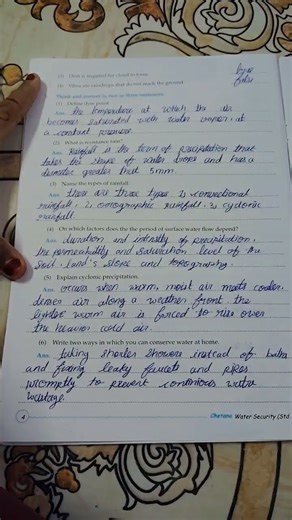 (3) Dust is required for cloud to form.
(4) Virga are raindrops that do not reach the ground.
true
false
Think and answer in two or three sentences:
(1) Define dew point.
Ans. the temperature at which the air
becomes saturated with water vapour, at
a constant pressure.
(2) What is
Ans. Rainfall is the term of precipitation that
takes the shape of water drops and has a
diameter greater that 5mm.
(3) Name the types of rainfall.
Ans. There are three types 1) convectional
rainfall, 2) orographic rainfall. 3) cyclonic
rainfall.
(4) On which factors does the the period of surface water flow depend?
Ans. duration and intensity of precipitation,
the permeability and saturation level of the
soil, land's slope and topography.
(5) Explain cyclonic precipitation.
Ans. occurs when warm, moist air meets cooler,
denser air along a weather front, the
lighter warm air is forced to rise over
the heavier cold air.
(6) Write two ways in which you can conserve water at home.
Ans. taking shorter showers instead of baths
and fixing leaky faucets and pipes
promptly to prevent continuous water
wastage.
4
Chetana Water Security (Std.